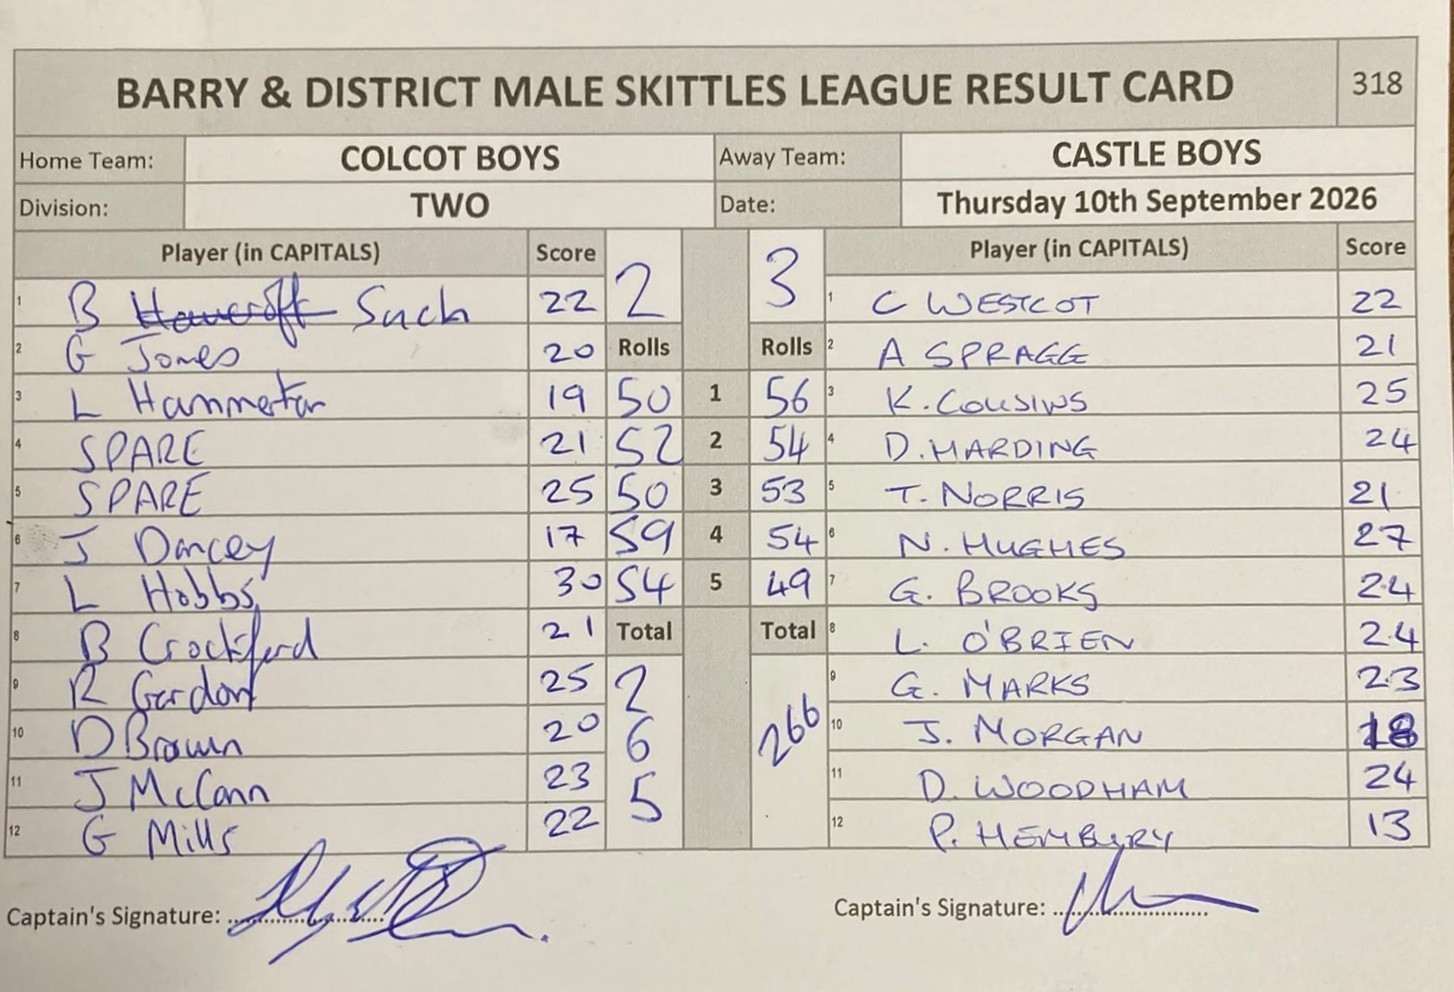 BARRY & DISTRICT MALE SKITTLES LEAGUE RESULT CARD 318
Home Team: COLCOT BOYS Away Team: CASTLE BOYS
Division: TWO Date: Thursday 10th September 2026
Player (in CAPITALS) Score 2 3 Player (in CAPITALS) Score
1 B Such 22 1 C WESTCOT 22
2 G Jones 20 Rolls Rolls 2 A SPRAGG 21
3 L Hammerton 19 50 1 56 3 K. COUSINS 25
4 SPARE 21 52 2 54 4 D. HARDING 24
5 SPARE 25 50 3 53 5 T. NORRIS 21
6 J Dancey 17 59 4 54 6 N. HUGHES 27
7 L Hobbs 30 54 5 49 7 G. BROOKS 24
8 B Crockford 21 Total Total 8 L. O'BRIEN 24
9 R Gordon 25 265 266 9 G. MARKS 23
10 D Brown 20 10 J. MORGAN 18
11 J McCann 23 11 D. WOODHAM 24
12 G Mills 22 12 P. HEMBURY 13
Captain's Signature: Captain's Signature: